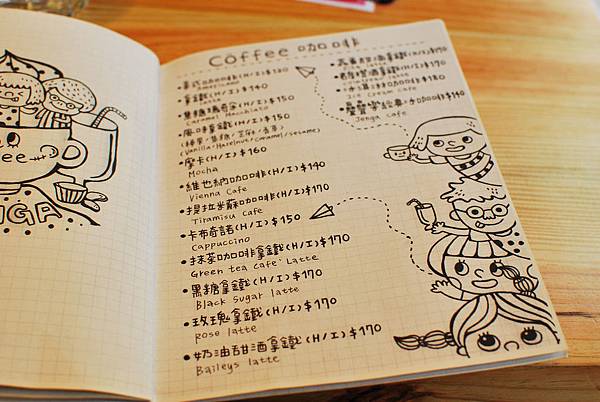 Coffee 咖啡
•美式咖啡(H/I)$120
Americano
•拿鐵(H/I)$140
Latte
•焦糖瑪奇朵(H/I)$150
Caramel Macchiato
•風味拿鐵(H/I)$150
(榛果、焦糖、芝麻、香草)
(Vanilla, Hazelnut, Caramel, Sesame)
•摩卡(H/I)$160
Mocha
•維也納咖啡(H/I)$140
Vienna Cafe
•提拉米蘇咖啡(H/I)$170
Tiramisu Cafe
•卡布奇諾(H/I)$150
Cappuccino
•抹茶咖啡拿鐵(H/I)$170
Green tea cafe' Latte
•黑糖拿鐵(H/I)$170
Black sugar latte
•玫瑰拿鐵(H/I)$170
Rose latte
•奶油甜酒拿鐵(H/I)$170
Baileys latte
拿鐵(H/I)$170
latte
酒拿鐵(H/I)$170
latte
•冰淇淋咖啡$180
Ice Cream Cafe
•疊疊樂 冰咖啡$140
Jenga Cafe
ffee
NGA